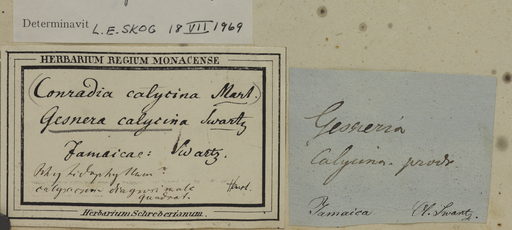 Determinavit L.E. SKOG 18 VII 1969
HERBARIUM REGIUM MONACENSE
(Conradia calycina Mart.)
Gesnera calycina Swartz
Jamaicae: Swartz.
calycinum
quadrat.
Herbarium Schreberianum.
Gesneria
Calycina. prodr
Jamaica Ol. Swartz.